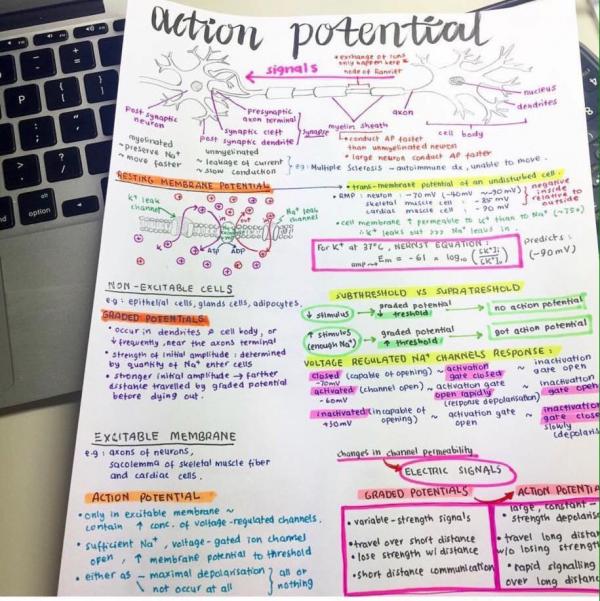 action potential
signals
• exchange of ions
only happen here
node of Ranvier
nucleus
dendrites
axon
cell body
Post synaptic
neuron
Presynaptic
axon terminal
synaptic cleft
post synaptic dendrite
synapse
myelin sheath
~ conduct AP faster
than unmyelinated neuron
• large neuron conduct AP faster
myelinated
~ preserve Na+
~ move faster
unmyelinated
~ leakage of current
~ slow conduction
eg: Multiple Sclerosis ~ autoimmune dx, unable to move.
RESTING MEMBRANE POTENTIAL
• trans-membrane potential of an undisturbed cell.
• RMP: neuron : -70 mV (-40mV ~ -90mV)
skeletal muscle cell : - 85 mV
cardiac muscle cell : - 90 mV
negative
inside
relative to
outside
• cell membrane ↑ permeable to K+ than to Na+ (~75x)
∴ K+ leaks out >>> Na+ leaks in
K+ leak
channel
in
out
Na+ leak
channel
ATP
ADP
For K+ at 37°C, NERNST EQUATION :
Em = -61 x log10 ([K+]i / [K+]o)
predicts:
(-90mV)
NON-EXCITABLE CELLS
eg: epithelial cells, glands cells, adipocytes.
GRADED POTENTIALS
• occur in dendrites & cell body, or
↓ frequently, near the axons terminal
• strength of initial amplitude : determined
by quantity of Na+ enter cells
• stronger initial amplitude → farther
distance travelled by graded potential
before dying out.
SUBTHRESHOLD VS SUPRATRESHOLD
↓ stimulus → graded potential → no action potential
↓ treshold
↑ stimulus → graded potential → got action potential
(enough Na+) ↑ threshold
VOLTAGE REGULATED NA+ CHANNELS RESPONSE :
closed (capable of opening) ~ activation ~ inactivation
-70mV gate closed gate open
activated (channel open) ~ activation gate ~ inactivation
-60mV open rapidly gate open
(response depolarisation)
inactivated (incapable of ~ activation gate ~ inactivation
+30mV opening) open gate close
slowly
(depolaris
EXCITABLE MEMBRANE
eg: axons of neurons,
sacolemma of skeletal muscle fiber
and cardiac cells.
changes in channel permeability
ELECTRIC SIGNALS
ACTION POTENTIAL
• only in excitable membrane ~
contain ↑ conc. of voltage-regulated channels.
• sufficient Na+, voltage-gated ion channel
open, ↑ membrane potential to threshold
• either as - maximal depolarisation
not occur at all
all or
nothing
GRADED POTENTIALS
• variable-strength signals
• travel over short distance
• lose strength w/ distance
• short distance communication
ACTION POTENTIA
• large, constant-
strength depolaris
• travel long distan
w/o losing strength
• rapid signalling
over long distance